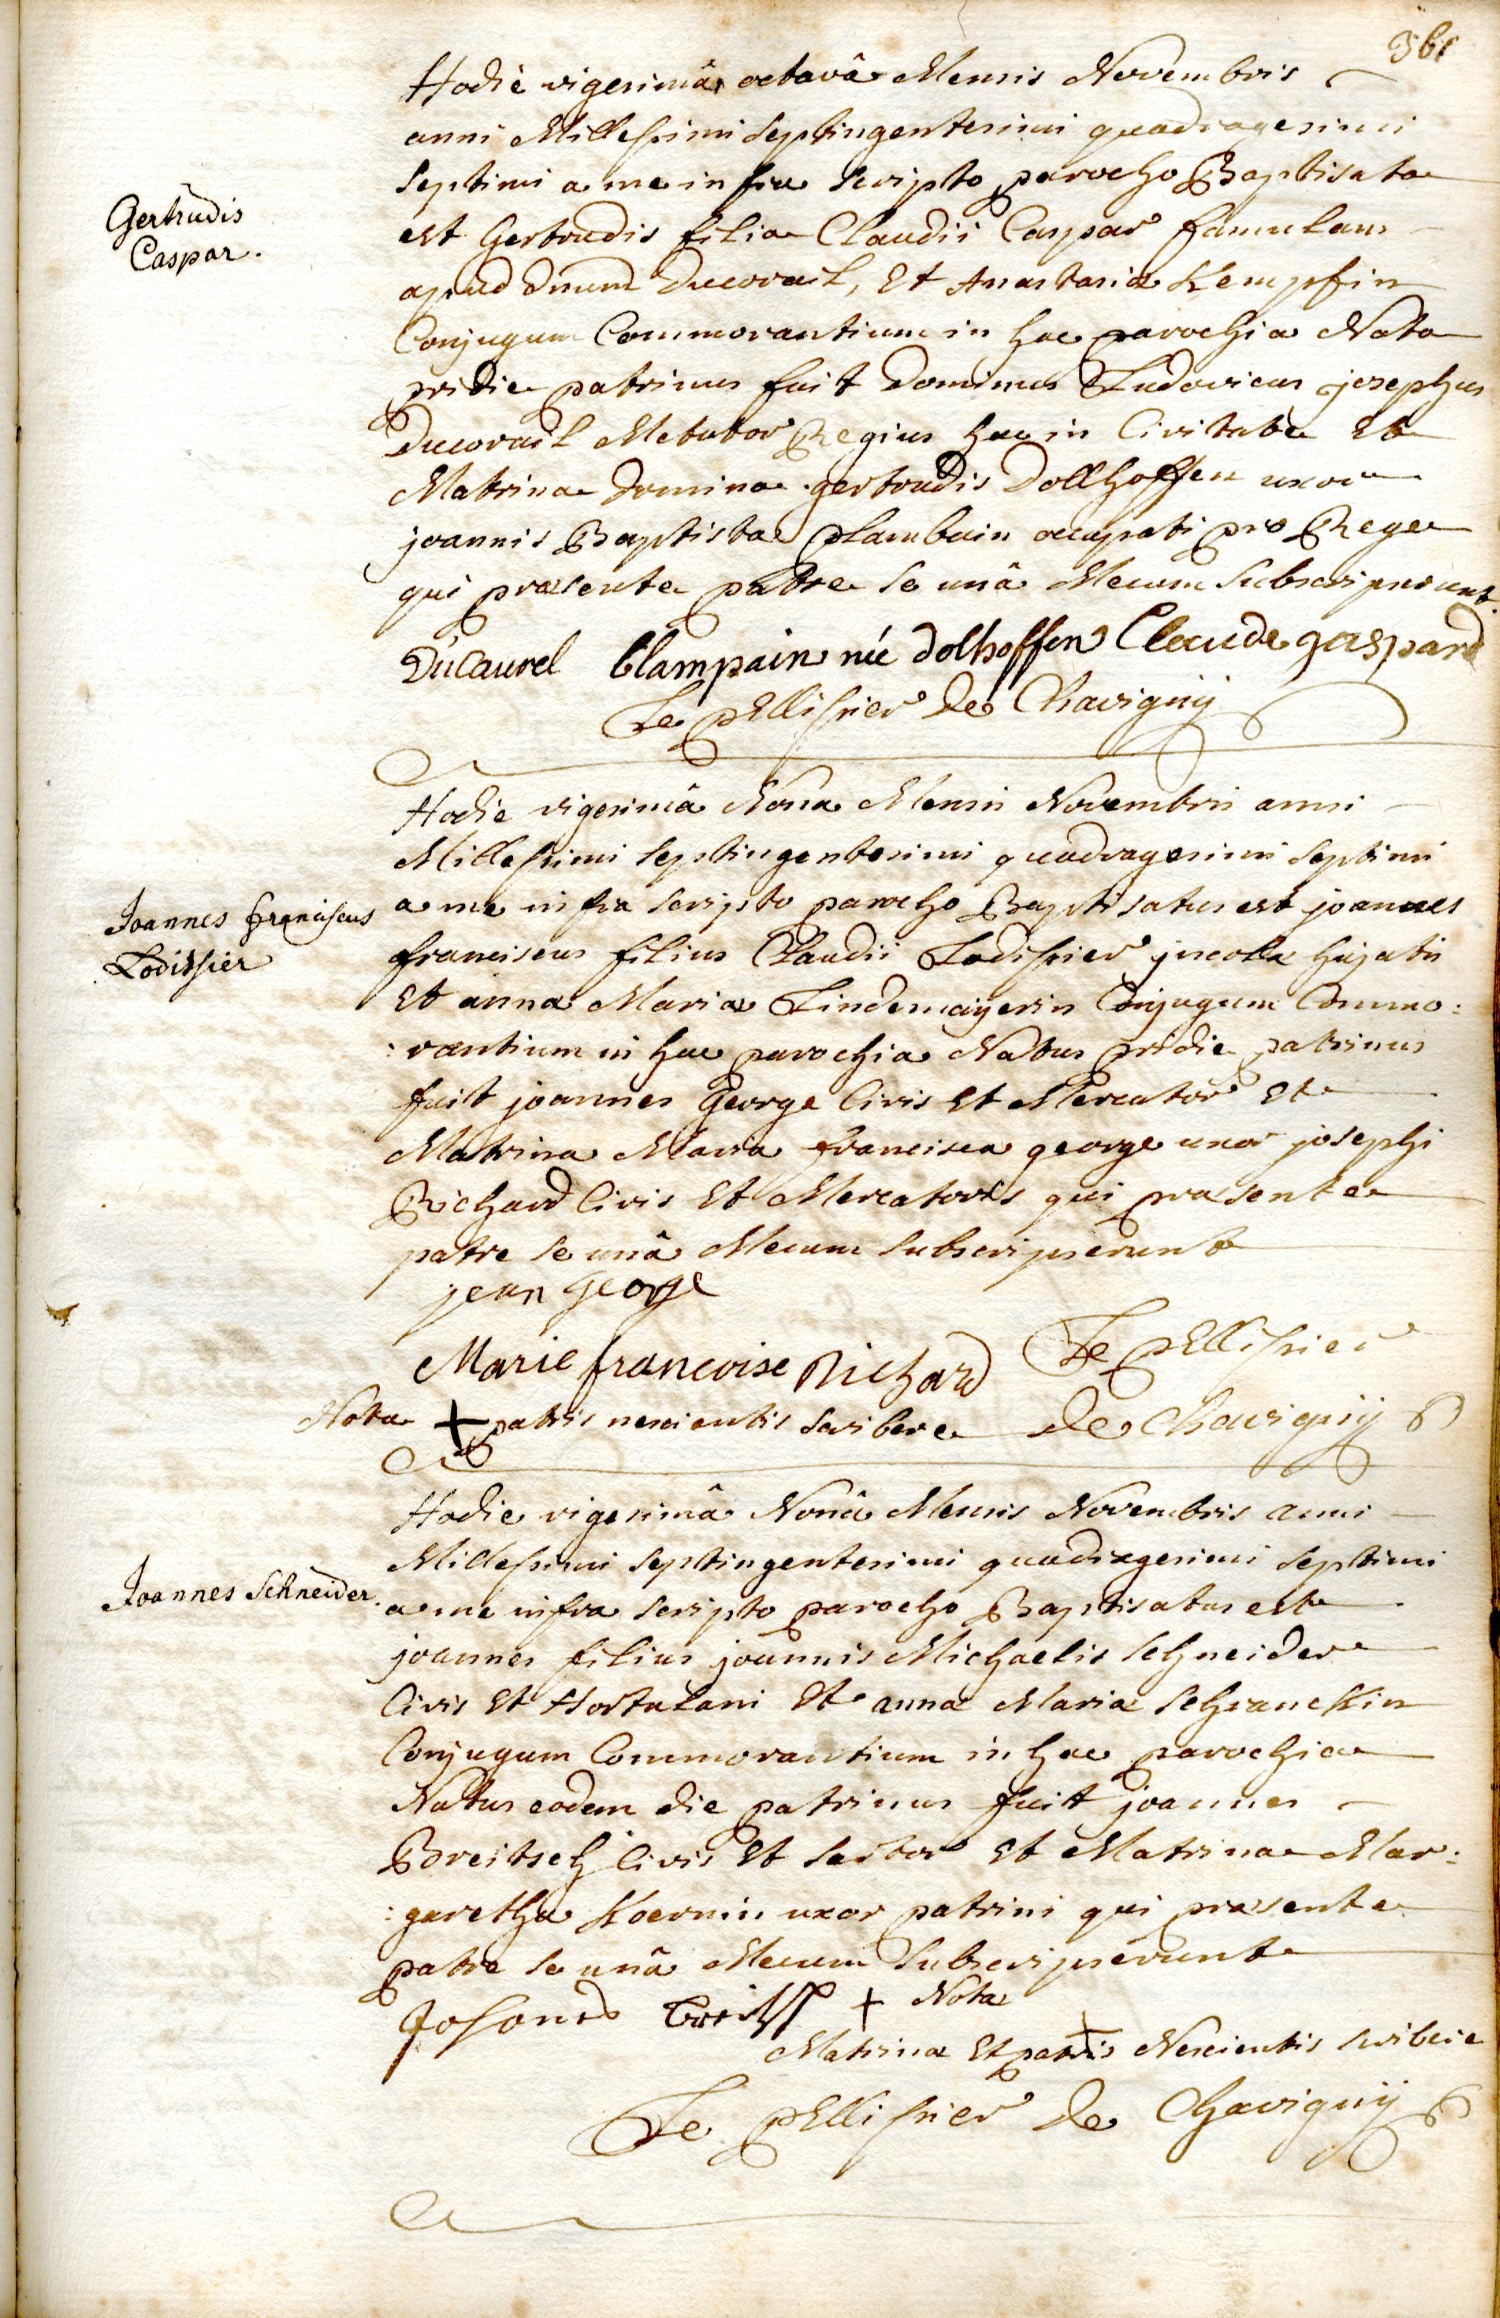 361
Hodiè vigesimâ octavâ Mensis Novembris
anni Millesimi septingentesimi quadragesimi
septimi a me infra scripto parocho Baptisata
Gertrudis
Caspar.
est Gertrudis filia Claudii Caspar famulans
apud dnum Ducorail, Et Anastasiæ Kempffin
Conjugum Commorantium in hac parochia Nata
pridie patrinus fuit Dominus Ludovicus josephus
Ducorail Metator Regius hac in Civitate Et
Matrina Domina gertrudis Dollhoffen uxor
joannis Baptistae plambain occupati pro Rege
qui præsente patre se unâ Mecum Subscripserunt.
Ducaurel blampain née dolhoffen Claude gaspard
Le pEllissier de Chavignÿ
Hodie vigesimâ Nona Mensis Novembris anni
Millesimi septingentesimi quadragesimi septimi
Joannes Franciscus
Lodissier
a me infra scripto parocho Baptisatus est joannes
franciscus filius Claudii Lodissier jncolæ hujatis
Et annæ Mariæ Lindemayerin Conjugum Commo:
:rantium in hac parochia Natus pridie patrinus
fuit joannes George Civis Et Mercator Et
Matrina Maria francisca george uxor josephi
Richard Civis Et Mercatoris qui præsente
patre se unâ Mecum subscripserunt
jean George
Marie francoise Richard Le pEllissier
Nota + patris nescientis scribere de Chavignÿ
Hodie vigesimâ Nonâ Mensis Novembris anni
Millesimi septingentesimi quadragesimi septimi
Joannes Schneider.
a me infra scripto parocho Baptisatus est
joannes filius joannis Michaelis Schneider
Civis Et Hortulani Et annæ Mariæ Schranckin
Conjugum Commorantium in hac parochia
Natus eodem die patrinus fuit joannes
Breitsch Civis Et sartor Et Matrina Mar:
:garetha Koernin uxor patrini qui præsente
patre se unâ Mecum subscripserunt
Johannes + Nota
Matrinæ Et patris + Nescientis scribere
Le pEllissier de Chavignÿ